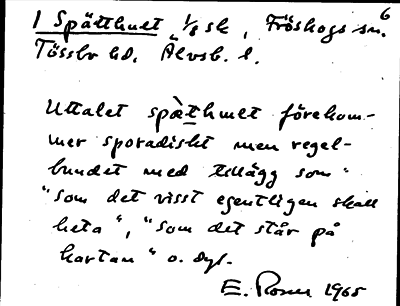 6
1 Spätthult 1/8 sk, Fröskogs sn.
Tössbo hd. Älvsb. l.
Uttalet spàthult förekom-
mer sporadiskt men regel-
bundet med tillägg som
"som det visst egentligen skall
heta", "som det står på
kartan" o. dyl.
E. 1965